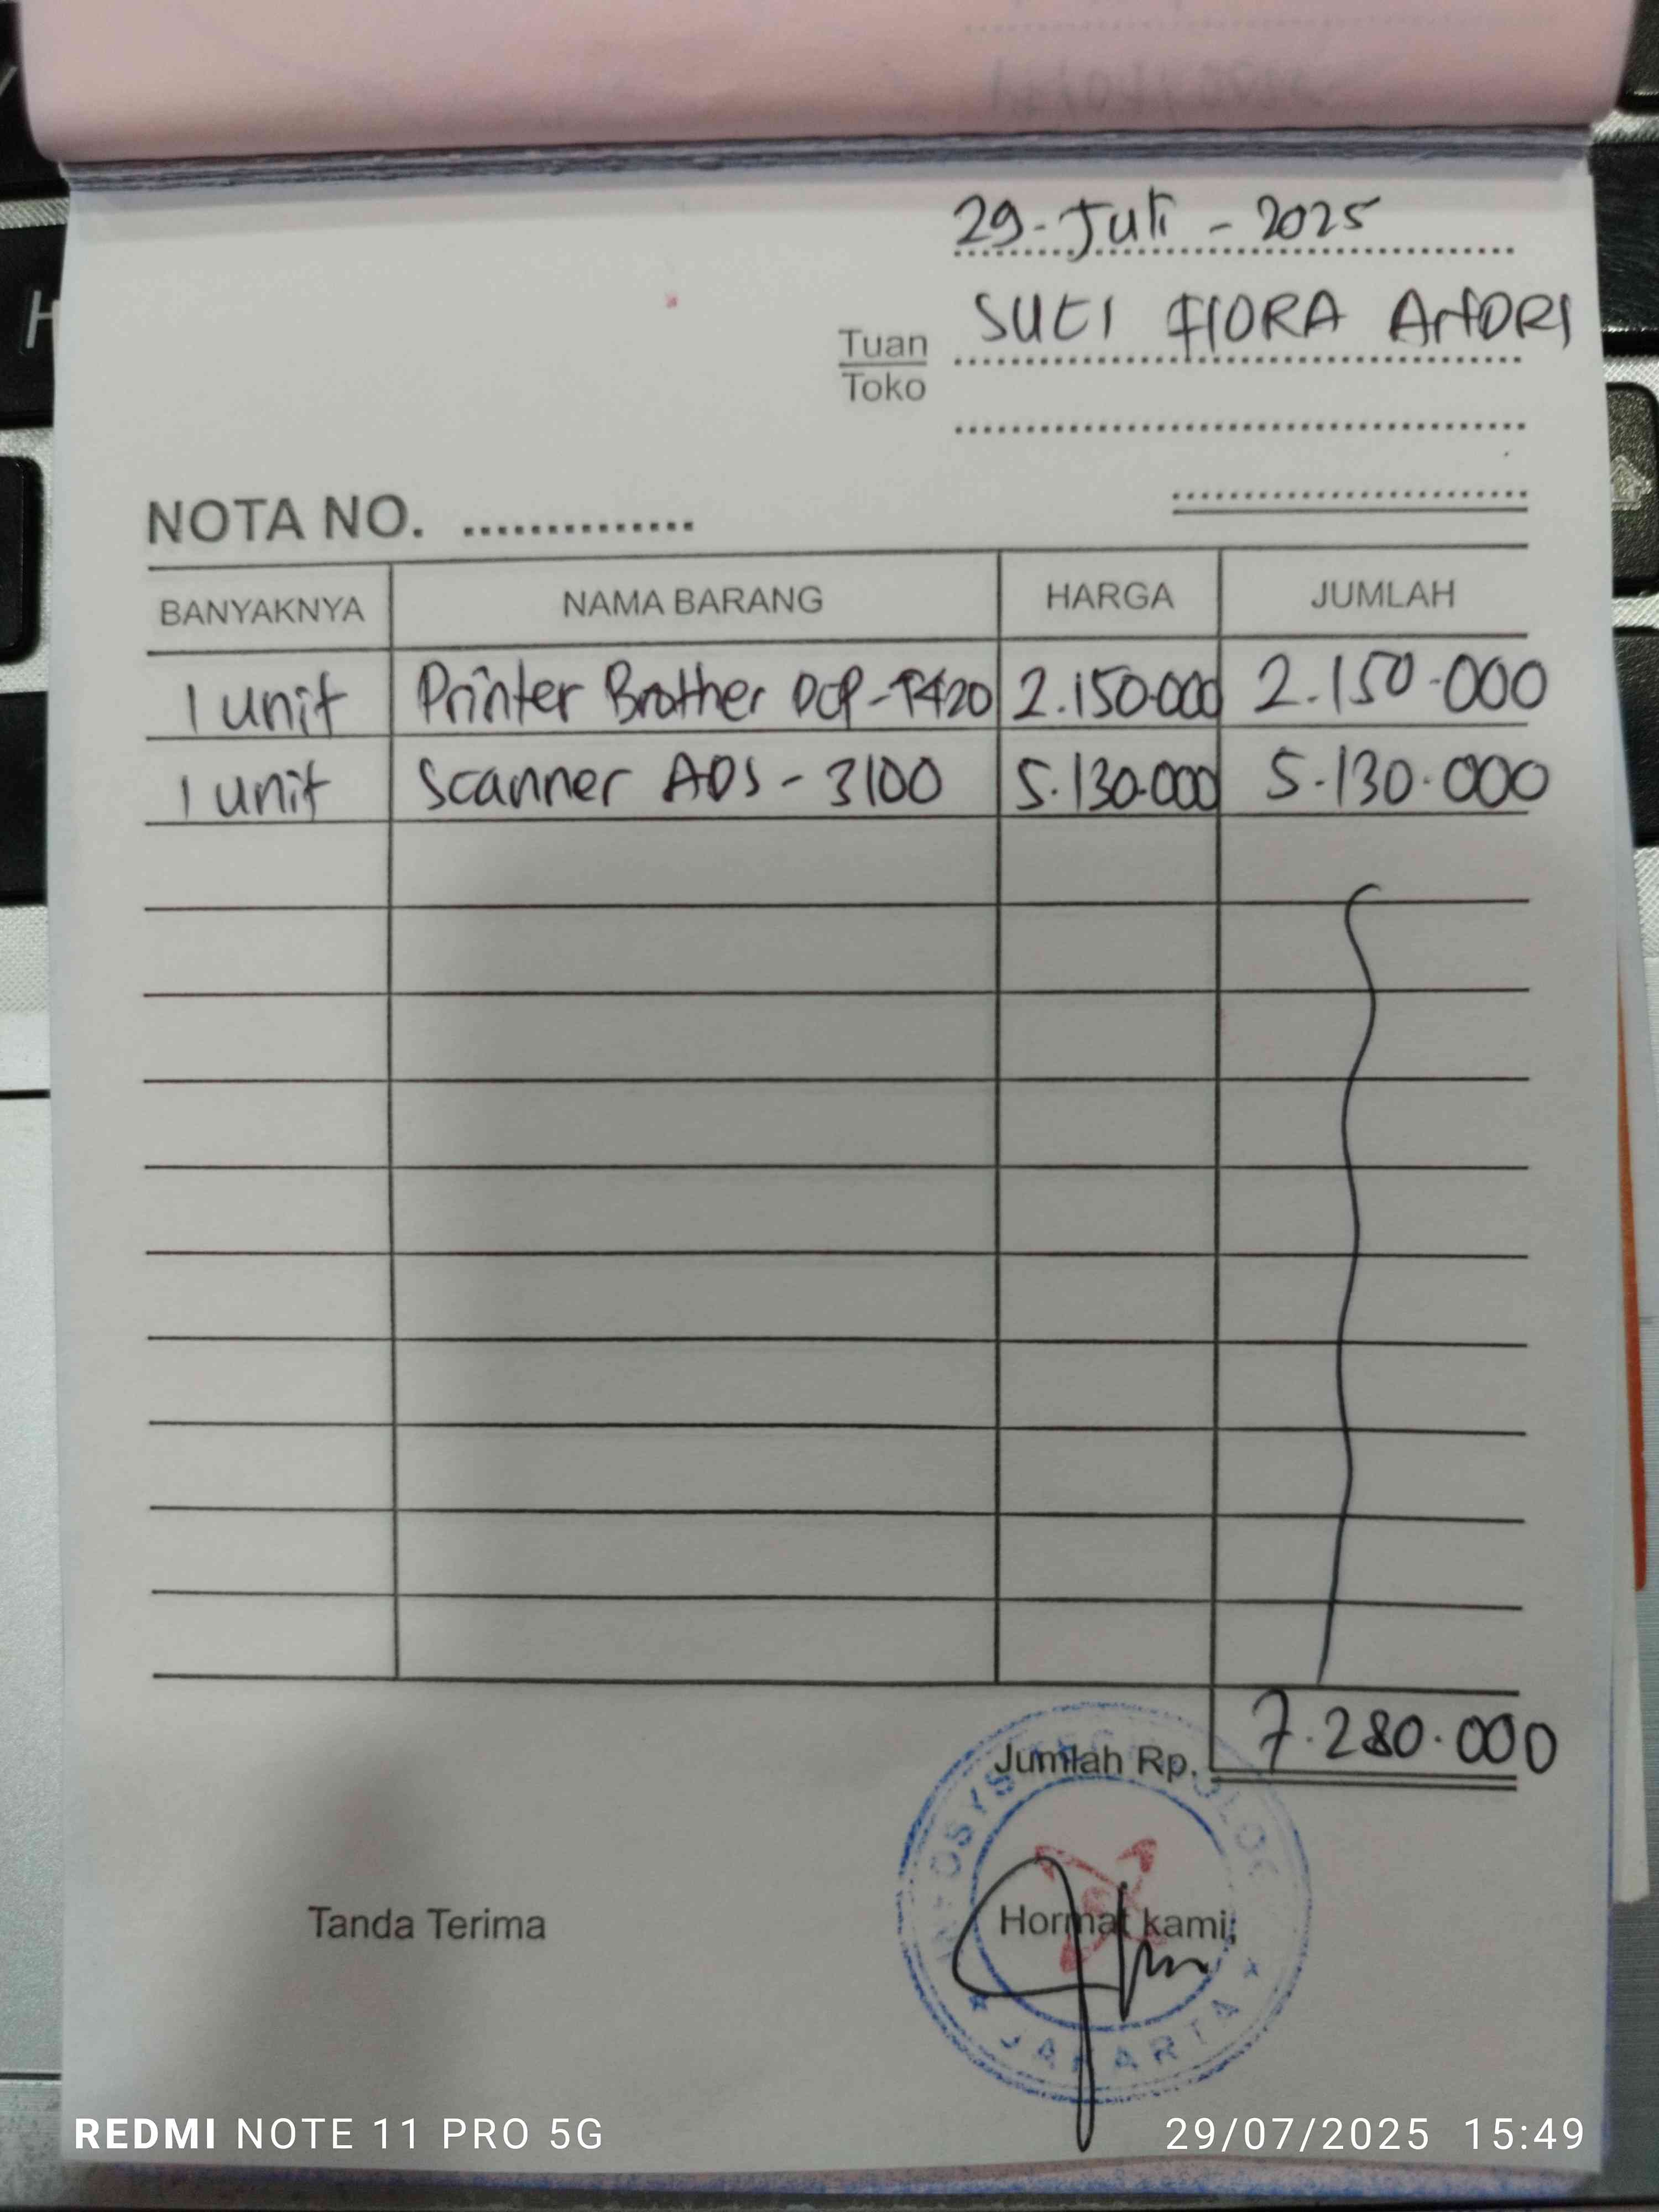 29-Juli-2025
Tuan
Toko
SUCI FIORA
NOTA NO. ..............
BANYAKNYA NAMA BARANG HARGA JUMLAH
1 unit Printer Brother DCP-T420 2.150.000 2.150.000
1 unit Scanner ADS-3100 5.130.000 5.130.000
Jumlah Rp. 7.280.000
Tanda Terima Hormat kami,
JAKARTA
REDMI NOTE 11 PRO 5G 29/07/2025 15:49
H